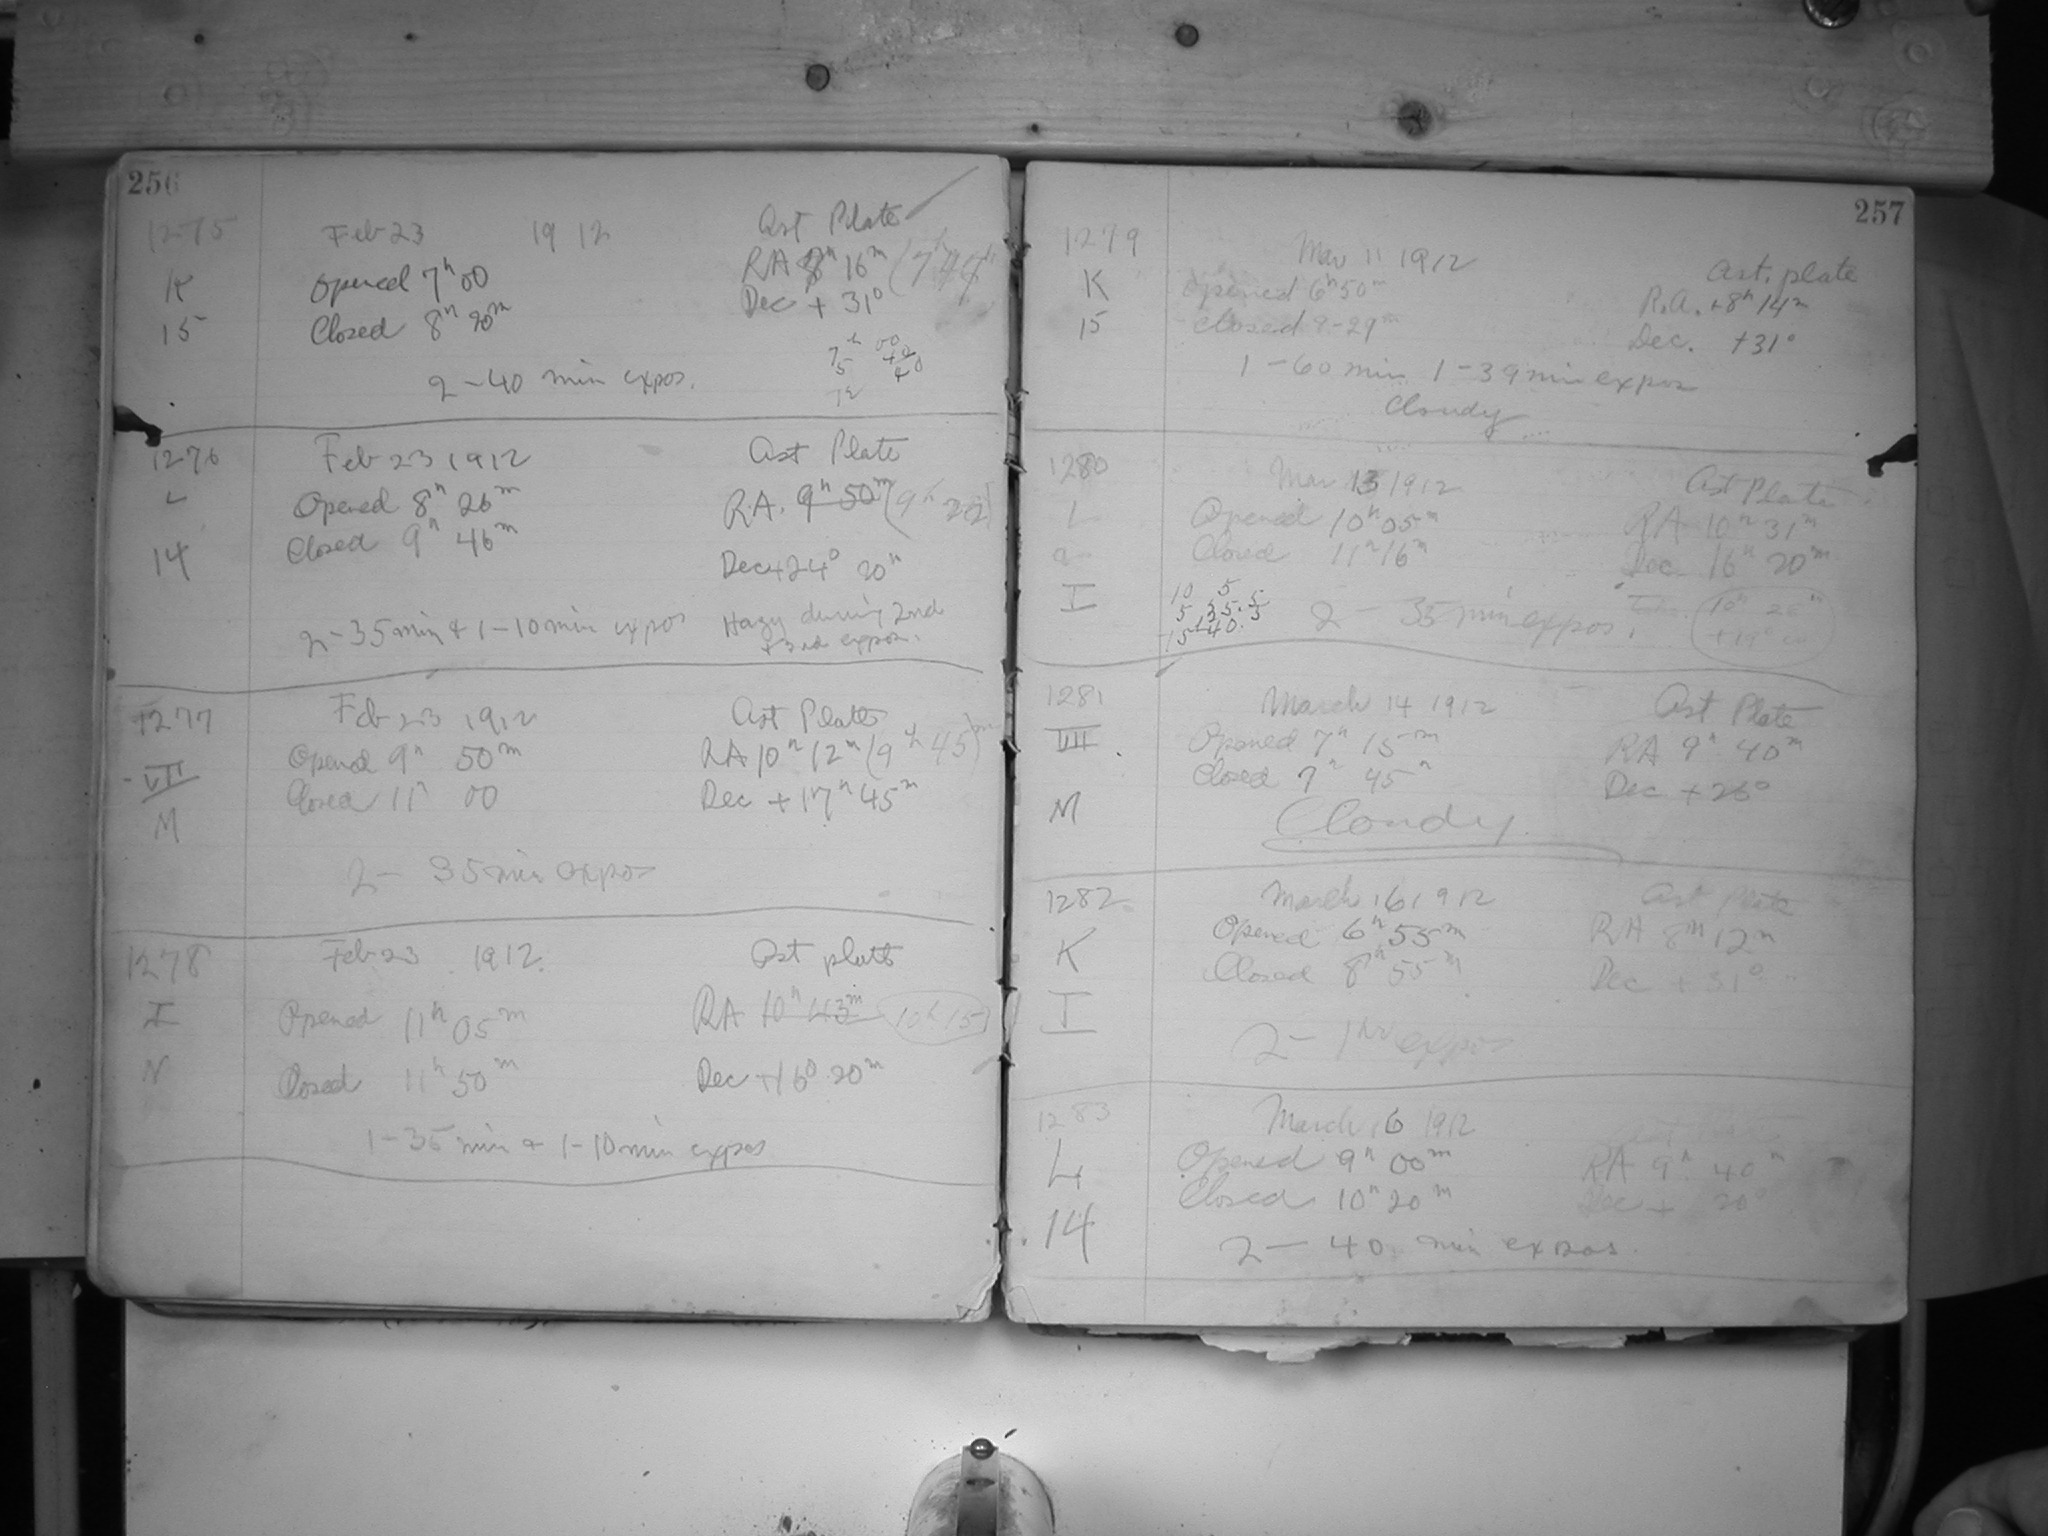 256
1275 Feb 23 1912 Ast Plate
K Opened 7h 00 RA 8h 16m (7h 44m
15 Closed 8h 20m Dec + 31°
2-40 min expos.
1276 Feb 23 1912 Ast Plate
L Opened 8h 26m RA. 9h 50m (9h 22
14 Closed 9h 46m
Dec +24° 20m
2-35 min & 1-10 min expos Hazy during 2nd
+ 3rd expos.
1277 Feb 23 1912 Ast Plate
VII Opened 9h 50m RA 10h 12m (9h 45)m
M Closed 11h 00 Dec + 17h 45m
2- 35 min expos
1278 Feb 23 1912. Ast plate
I Opened 11h 05m RA 10h 43m (10h 15)
N Closed 11h 50m Dec +16° 20m
1-35 min & 1-10 min expos
257
1279 Mar 11 1912 Ast. plate
K Opened 6h 50m R.A. +8h 14m
15 Closed 8-29m Dec. +31°
1-60 min 1-39 min expos
Cloudy
1280 Mar 13 1912 Ast Plate
L Opened 10h 05m RA 10h 31m
Closed 11h 16m Dec 16h 20m
I 10 5
2 - 35 min expos.
1281 March 14 1912 Ast Plate
VII. Opened 7h 15m RA 9h 40m
Closed 7h 45m Dec +26°
M Cloudy
1282 March 16 1912 Ast Plate
K Opened 6h 55m RA 8h 12m
Closed 8h 55m Dec +31°
I
2- 1hr expos
1283 March 16 1912
L Opened 9h 00m RA 9h 40m
Closed 10h 20m Dec + 20°
14
2- 40 min expos.